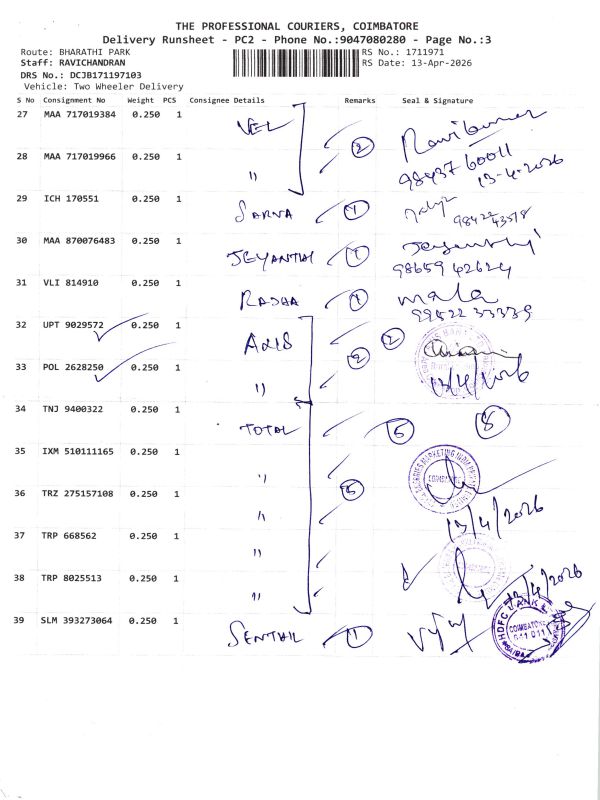 THE PROFESSIONAL COURIERS, COIMBATORE
Delivery Runsheet - PC2 - Phone No.:9047080280 - Page No.:3
Route: BHARATHI PARK
RS No.: 1711971
Staff: RAVICHANDRAN
RS Date: 13-Apr-2026
DRS No.: DCJB171197103
Vehicle: Two Wheeler Delivery
S No Consignment No Weight PCS Consignee Details Remarks Seal & Signature
27 MAA 717019384 0.250 1 VEL 2 Ravikumar
98437 60011
28 MAA 717019966 0.250 1 " 13-4-2026
29 ICH 170551 0.250 1 SARNA 1
30 MAA 870076483 0.250 1 JEYANTHI 1 Jeyanthi
98659 42624
31 VLI 814910 0.250 1 RADHA 1 mala
99522 33339
32 UPT 9029572 0.250 1 AXIS 2
33 POL 2628250 0.250 1 " 2 13/4/2026
34 TNJ 9400322 0.250 1 TOTAL 5 8
35 IXM 510111165 0.250 1 " COIMBATORE
36 TRZ 275157108 0.250 1 " 5 13/4/2026
37 TRP 668562 0.250 1 "
38 TRP 8025513 0.250 1 " 13/4/2026
39 SLM 393273064 0.250 1 SENTHIL 1 HDFC BANK
COIMBATORE
641 011